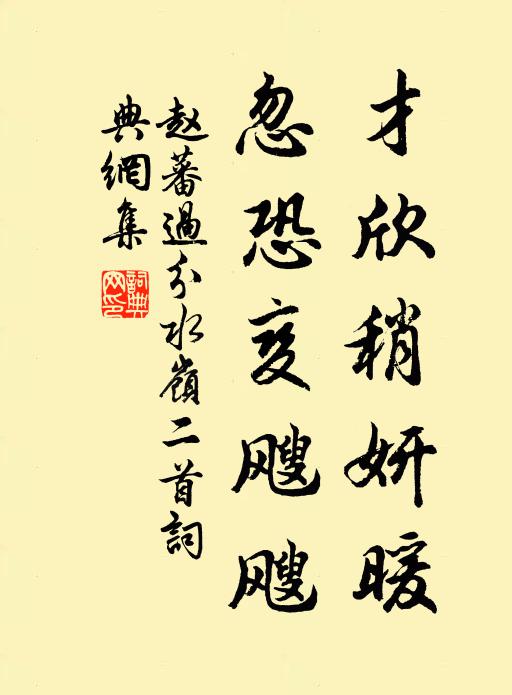 才欣稍妍暖
忽恐变飕飕
赵蕃過分水嶺二首詞
典網集
詞典
网印